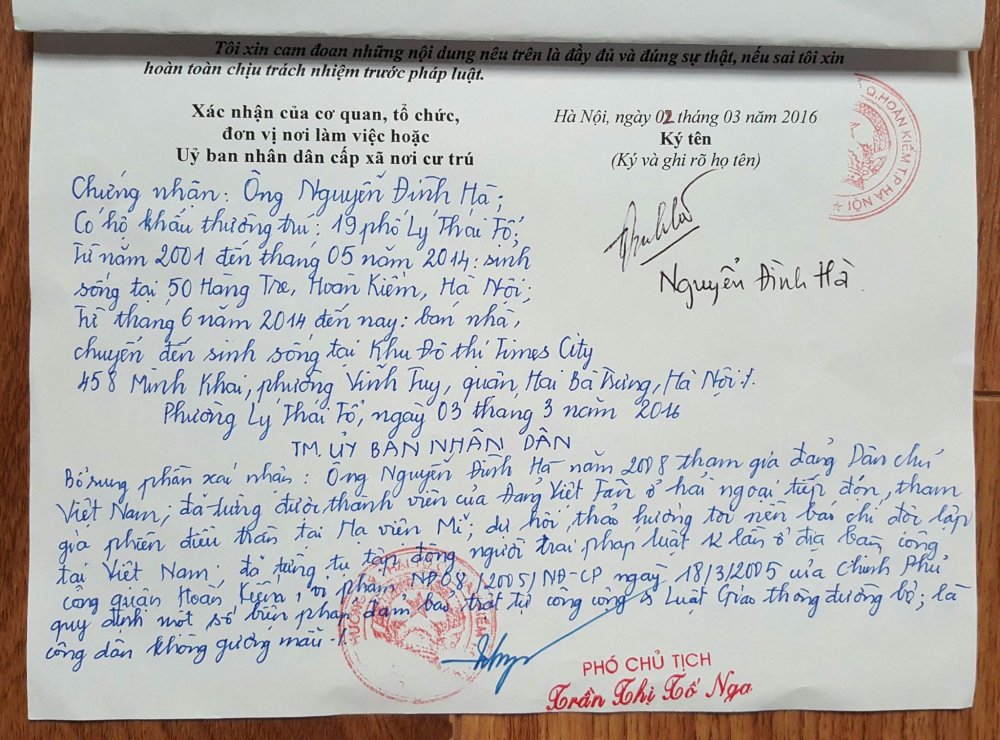 Tôi xin cam đoan những nội dung nêu trên là đầy đủ và đúng sự thật, nếu sai tôi xin
hoàn toàn chịu trách nhiệm trước pháp luật.
Xác nhận của cơ quan, tổ chức,
đơn vị nơi làm việc hoặc
Uỷ ban nhân dân cấp xã nơi cư trú
Hà Nội, ngày 02 tháng 03 năm 2016
Ký tên
(Ký và ghi rõ họ tên)
Q.HOÀN KIẾM T.P HÀ NỘI
Nguyễn Đình Hà
Chứng nhận: Ông Nguyễn Đình Hà;
Có hộ khẩu thường trú: 19 phố Lý Thái Tổ;
Từ năm 2001 đến tháng 05 năm 2014: sinh
sống tại 50 Hàng Tre, Hoàn Kiếm, Hà Nội;
Từ tháng 6 năm 2014 đến nay: bán nhà,
chuyển đến sinh sống tại Khu Đô thị Times City
458 Minh Khai, phường Vĩnh Tuy, quận Hai Bà Trưng, Hà Nội./.
Phường Lý Thái Tổ, ngày 03 tháng 3 năm 2016
TM. ỦY BAN NHÂN DÂN
Bổ sung phần xác nhận: Ông Nguyễn Đình Hà năm 2008 tham gia đảng Dân chủ
Việt Nam; đã từng được thành viên của Đảng Việt Tân ở hải ngoại tiếp đón, tham
gia phiên điều trần tại Hạ viện Mĩ; dự hội thảo hướng tới nền báo chí độc lập
tại Việt Nam; đã từng tụ tập đông người trái pháp luật 12 lần ở địa bàn công
cộng quận Hoàn Kiếm, vi phạm NĐ 08/2005/NĐ-CP ngày 18/3/2005 của Chính Phủ
quy định một số biện pháp đảm bảo trật tự công cộng & Luật Giao thông đường bộ; là
công dân không gương mẫu./.
PHÓ CHỦ TỊCH
Trần Thị Tố Nga